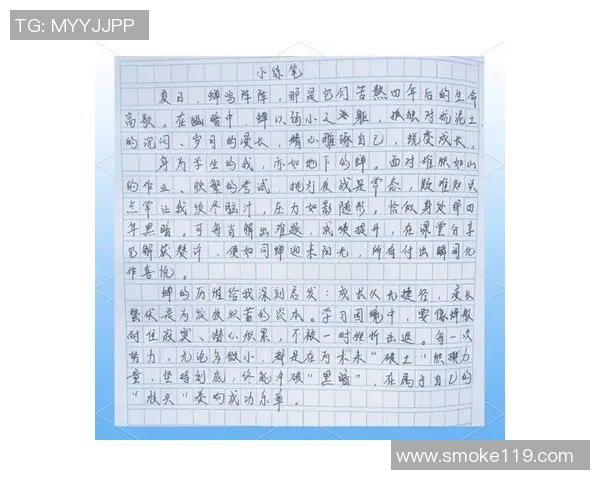 TG: MYYJJPP
小练笔
夏日，蝉鸣阵阵，那是它们苦熬四年后的生命
高歌。在幽暗中，蝉以弱小之躯，孤独对抗泥土
的沉闷、岁月的漫长，精心雕琢自己，蜕变成长。
身为学生的我，亦如地下的蝉。面对堆积如山
的作业、频繁的考试，挑灯夜战是常态，疑难知识
点常让我绞尽脑汁，压力如影随形，恰似身处那四
年黑暗。可每当解出难题，成绩提升，在课堂分享
见解获赞许，便如同蝉迎来阳光，所有付出瞬间化
作喜悦。
蝉的历程给我深刻启发：成长从无捷径，漫长
蛰伏是为绽放积蓄的资本。学习困境中，要像蝉般
耐住寂寞、潜心积累，不被一时挫折击退。每一次
努力，无论多微小，都是在为未来“破土”积攒力
量，坚持到底，终能冲破“黑暗”，在属于自己的
“枝头”奏响成功乐章。
www.smoke119.com